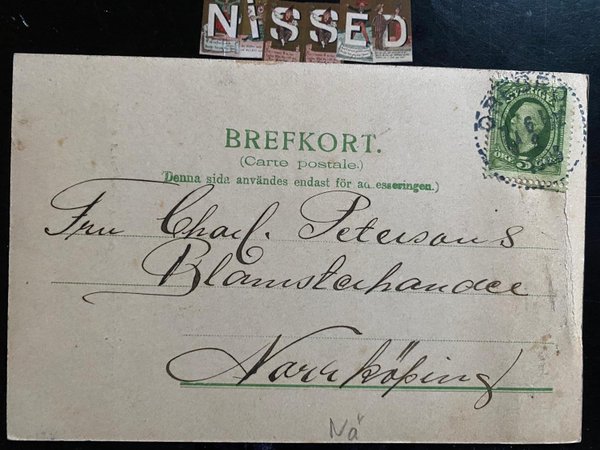 NiSSED
BREFKORT.
(Carte postale.)
(Denna sida användes endast för adresseringen.)
Fru Charl. Petersons
Blomsterhandel
Norrköping
Nä
5